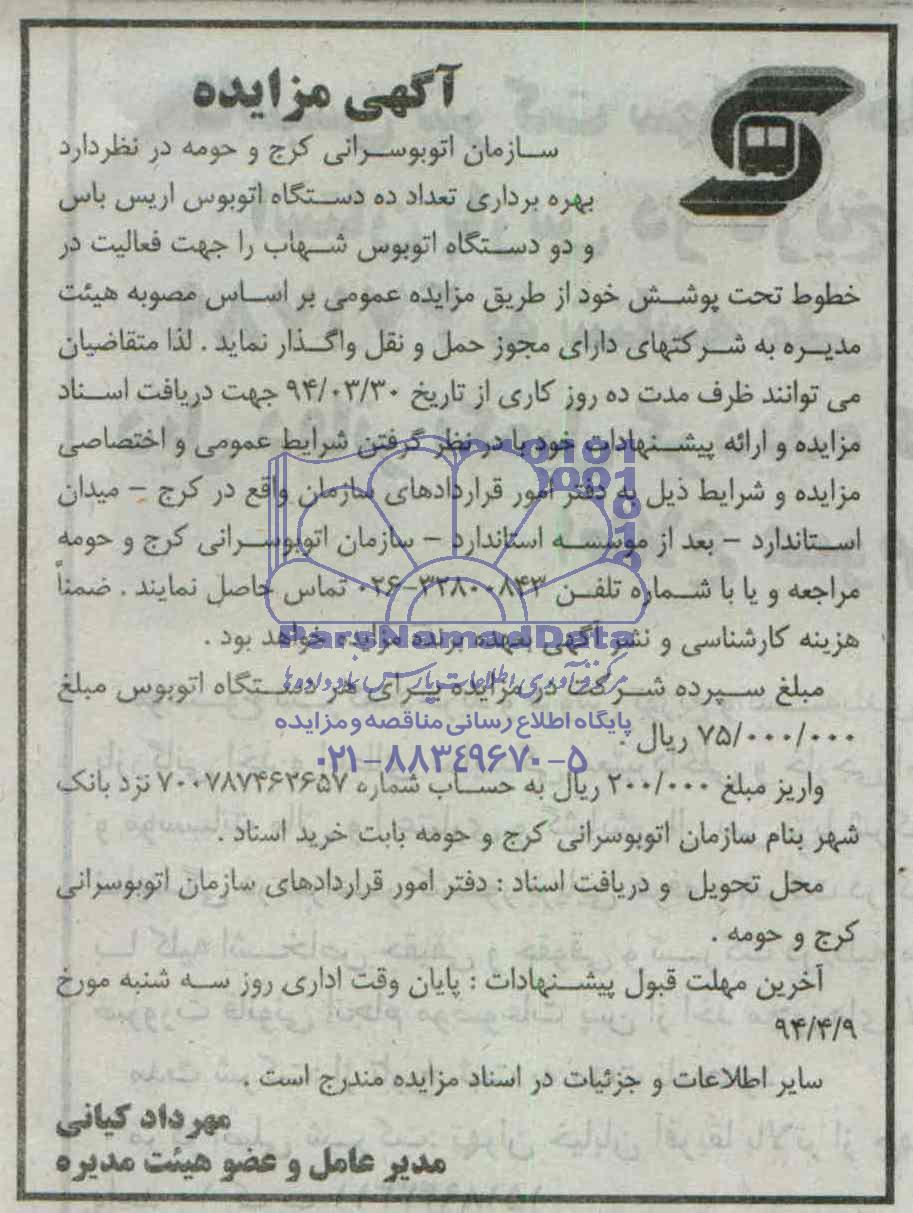 آگهی مزایده
سازمان اتوبوسرانی کرج و حومه در نظردارد
بهره برداری تعداد ده دستگاه اتوبوس اریس باس
و دو دستگاه اتوبوس شهاب را جهت فعالیت در
خطوط تحت پوشش خود از طریق مزایده عمومی بر اساس مصوبه هیئت
مدیره به شرکتهای دارای مجوز حمل و نقل واگذار نماید . لذا متقاضیان
می توانند ظرف مدت ده روز کاری از تاریخ ۹۴/۰۳/۳۰ جهت دریافت اسناد
مزایده و ارائه پیشنهادات خود با در نظر گرفتن شرایط عمومی و اختصاصی
مزایده و شرایط ذیل به دفتر امور قراردادهای سازمان واقع در کرج – میدان
استاندارد – بعد از موسسه استاندارد – سازمان اتوبوسرانی کرج و حومه
مراجعه و یا با شماره تلفن ۳۲۸۰۰۸۴۳-۰۲۶ تماس حاصل نمایند . ضمناً
هزینه کارشناسی و نشر آگهی بعهده برنده مزایده خواهد بود .
ParsNamadData
مرکز فرآوری اطلاعات پارس نماد داده ها
مبلغ سپرده شرکت در مزایده برای هر دستگاه اتوبوس مبلغ
پایگاه اطلاع رسانی مناقصه و مزایده
۷۵/۰۰۰/۰۰۰ ریال .
۰۲۱-۸۸۳۴۹۶۷۰-۵
واریز مبلغ ۲۰۰/۰۰۰ ریال به حساب شماره ۷۰۰۷۸۷۴۶۲۶۵۷ نزد بانک
شهر بنام سازمان اتوبوسرانی کرج و حومه بابت خرید اسناد .
محل تحویل و دریافت اسناد : دفتر امور قراردادهای سازمان اتوبوسرانی
کرج و حومه .
آخرین مهلت قبول پیشنهادات : پایان وقت اداری روز سه شنبه مورخ
۹۴/۴/۹
سایر اطلاعات و جزئیات در اسناد مزایده مندرج است .
مهرداد کیانی
مدیر عامل و عضو هیئت مدیره